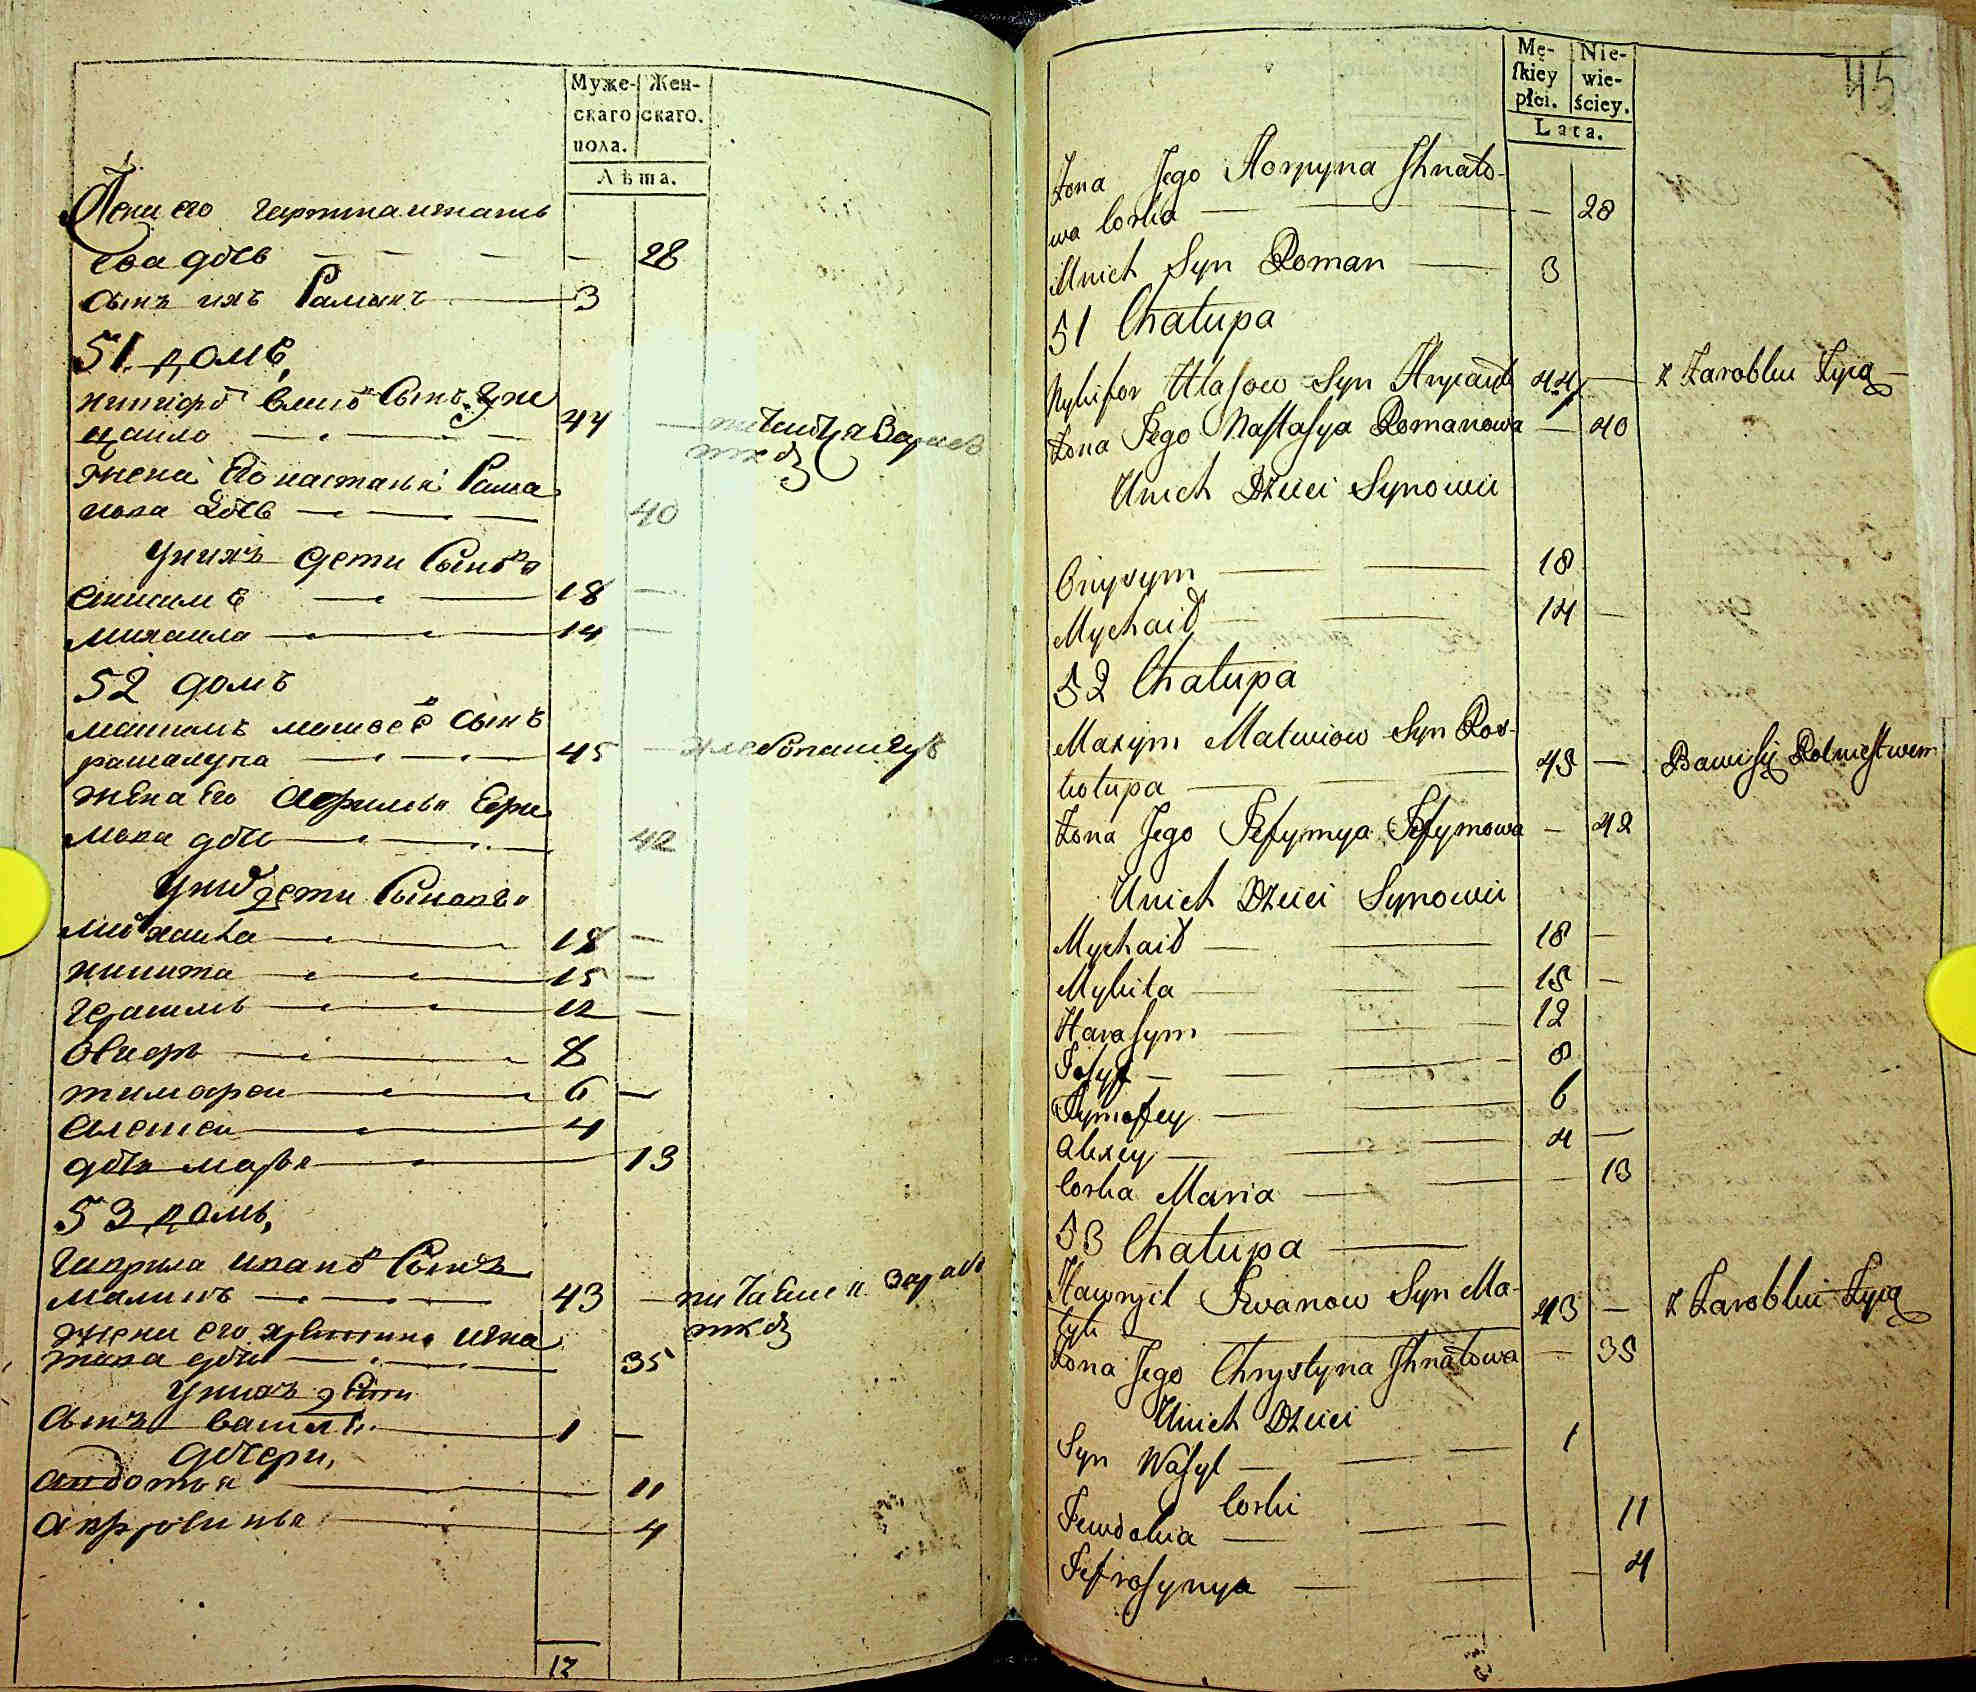 Муже-
скаго
пола.
Жен-
скаго.
Лѣта.
Жена его
ва дочь — 28
сынъ ихъ Раманъ — 3
51 домъ,
сынъ
44 —
жена его настасья Рама
нова дочь — 40
у нихъ дети
анисимъ — 18 —
михаила — 14 —
52 домъ
матвеевъ сынъ
45 — хлебопашецъ
жена его Ефи
мова дочь — 42
дети
18 —
никита — 15 —
герасимъ — 12 —
осифъ — 8
тимофеи — 6 —
алексеи — 4
дочь марья — 13
53 домъ,
гаврила иванов сынъ
43 —
жена его христина игна
това дочь — 35
у нихъ дети
сынъ васили — 1 —
дочери,
авдотья — 11
4
12
45
Mę-
skiey
płci.
Nie-
wie-
ściey.
Lata.
Żona Jego Horpyna Jhnato-
wa Corka — 28
Unich Syn Roman — 3
51 Chałupa
Nykifor Ułasow Syn 44 — z Zarobku Żyią
Żona Jego Nastasya Romanowa — 40
Unich Dzieci Synowie
Onysym — 18
Mychaił — 14 —
52 Chałupa
Maxym Matwiow Syn Ros-
tołupa — 45 — Bawi się Rolnictwem
Żona Jego Jefymya Jefymowa — 42
Unich Dzieci Synowie
Mychaił — 18 —
Mykita — 15 —
Harasym — 12
Josyf — 8
Tymofey — 6
Alexey — 4 —
Corka Maria — 13
53 Chałupa —
Hawryił Jwanow Syn Ma-
43 — z Zarobku Żyią
Żona Jego Chrystyna Jhnatowa — 35
Unich Dzieci
Syn Wasyl — 1
Corki
Jewdokia — 11
Jefrosynya — 4